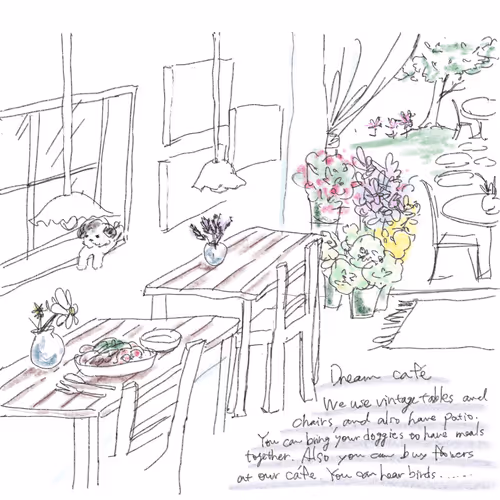 Dream café
We use vintage tables and
chairs, and also have patio.
You can bring your doggies to have meals
together. Also you can buy flowers
at our café. You can hear birds......